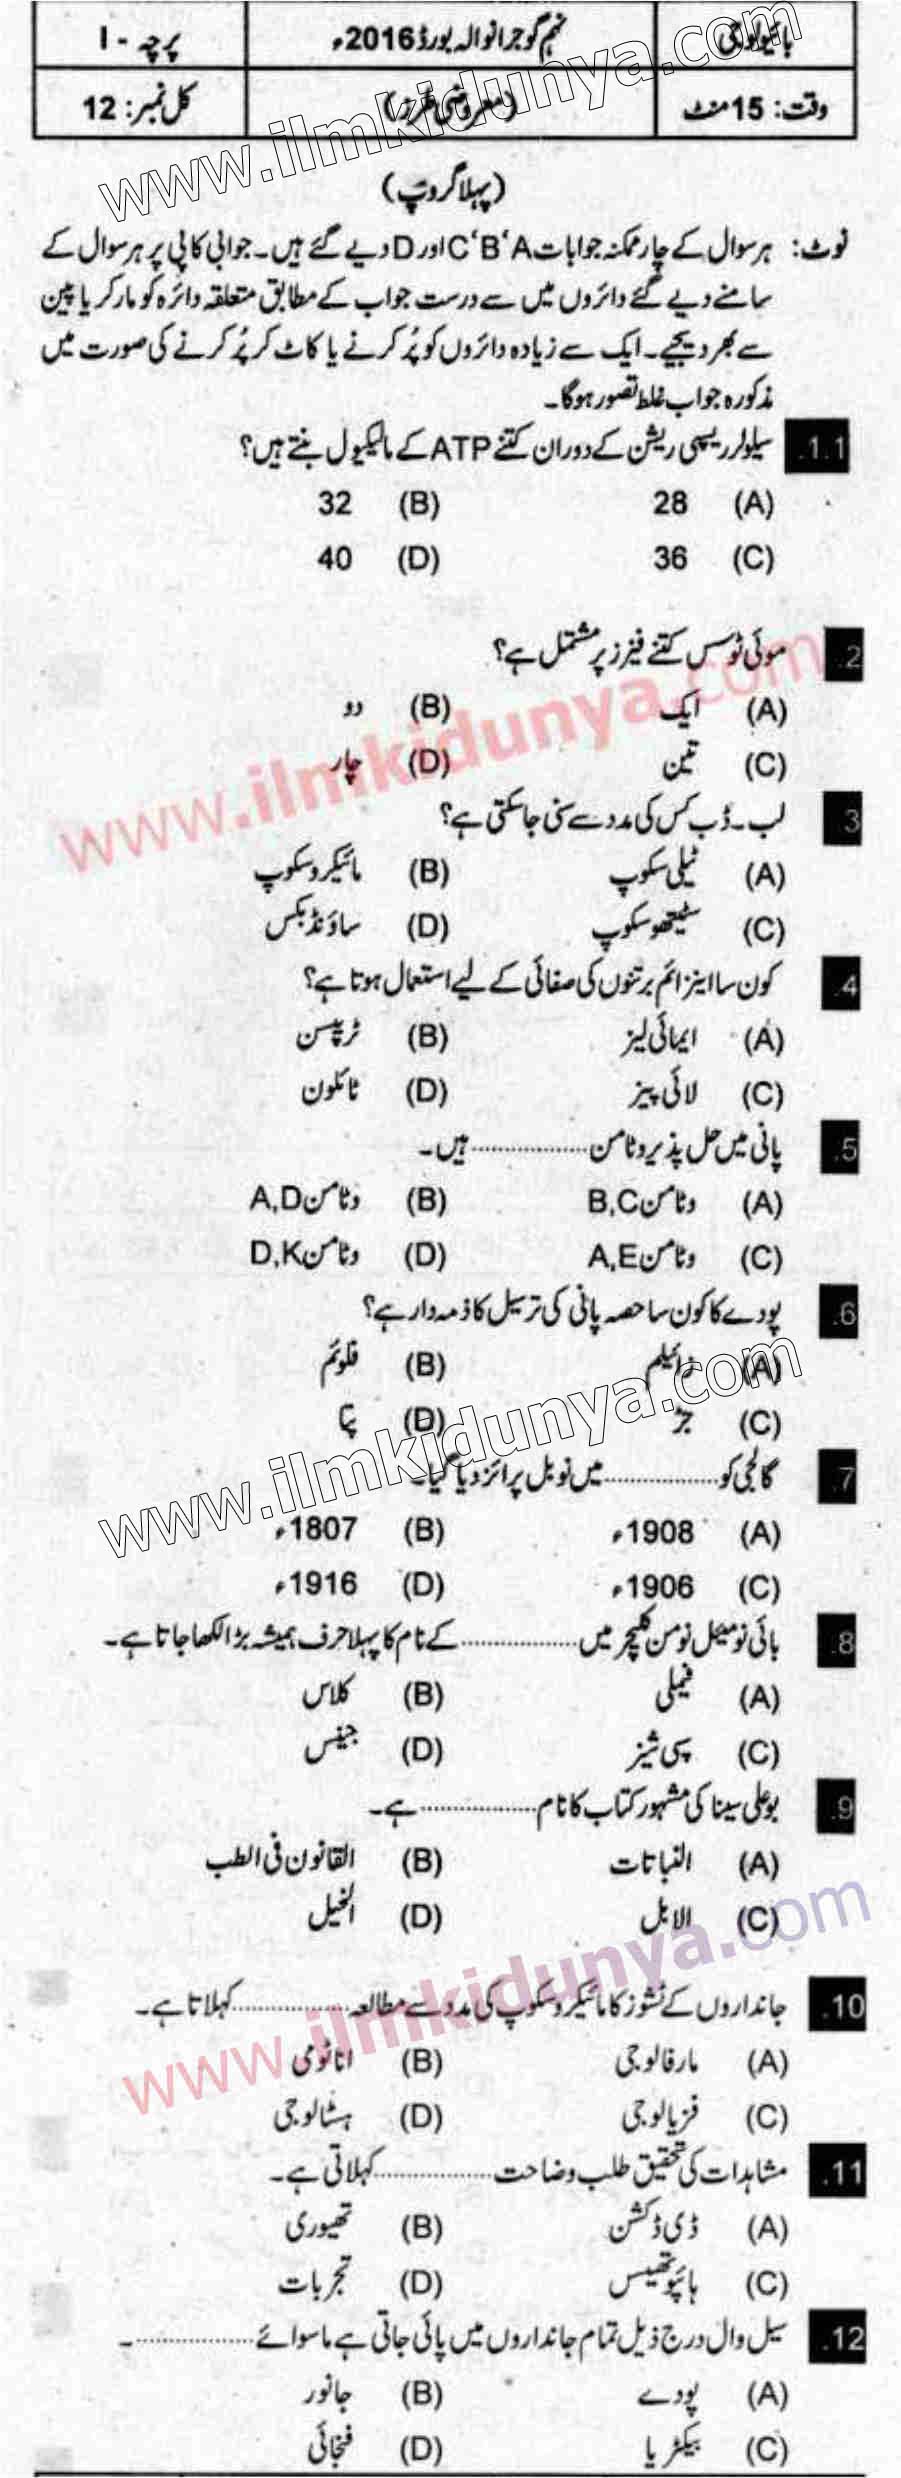 بائیولوجی
نہم گوجرانوالہ بورڈ 2016ء
پرچہ - I
وقت: 15 منٹ
(معروضی طرز)
کل نمبر: 12
www.ilmkidunya.com
(پہلا گروپ)
نوٹ: ہر سوال کے چار ممکنہ جوابات A‘B‘C اور D دیے گئے ہیں۔ جوابی کاپی پر ہر سوال کے
سامنے دیے گئے دائروں میں سے درست جواب کے مطابق متعلقہ دائرہ کو مارکر یا پین
سے بھر دیجیے۔ ایک سے زیادہ دائروں کو پُر کرنے یا کاٹ کر پُر کرنے کی صورت میں
مذکورہ جواب غلط تصور ہو گا۔
1.1. سیلولر ریسپی ریشن کے دوران کتنے ATP کے مالیکیول بنتے ہیں؟
(A) 28 (B) 32
(C) 36 (D) 40
2. موئی ٹوسس کتنے فیزز پر مشتمل ہے؟
(A) ایک (B) دو
(C) تین (D) چار
www.ilmkidunya.com
3. لب۔ڈب کس کی مدد سے سنی جا سکتی ہے؟
(A) ٹیلی سکوپ (B) مائیکروسکوپ
(C) سٹیتھوسکوپ (D) ساؤنڈ بکس
4. کون سا اینزائم برتنوں کی صفائی کے لیے استعمال ہوتا ہے؟
(A) ایمائی لیز (B) ٹرپسن
(C) لائی پیز (D) ٹائلون
5. پانی میں حل پذیر وٹامن .................. ہیں۔
(A) وٹامن B,C (B) وٹامن A,D
(C) وٹامن A,E (D) وٹامن D,K
6. پودے کا کون سا حصہ پانی کی ترسیل کا ذمہ دار ہے؟
(A) زائیلم (B) فلوئم
(C) جڑ (D) پتا
www.ilmkidunya.com
7. گالجی کو .................. میں نوبل پرائز دیا گیا۔
(A) 1908ء (B) 1807ء
(C) 1906ء (D) 1916ء
8. بائی نومیئل نومن کلیچر میں .................. کے نام کا پہلا حرف ہمیشہ بڑا لکھا جاتا ہے۔
(A) فیملی (B) کلاس
(C) سپی شیز (D) جینس
9. بوعلی سینا کی مشہور کتاب کا نام .................. ہے۔
(A) النباتات (B) القانون فی الطب
(C) الابل (D) الخیل
www.ilmkidunya.com
10. جانداروں کے ٹشوز کا مائیکروسکوپ کی مدد سے مطالعہ .................. کہلاتا ہے۔
(A) مارفالوجی (B) اناٹومی
(C) فزیالوجی (D) ہسٹالوجی
11. مشاہدات کی تحقیق طلب وضاحت .................. کہلاتی ہے۔
(A) ڈی ڈکشن (B) تھیوری
(C) ہائپوتھیسس (D) تجربات
12. سیل وال درج ذیل تمام جانداروں میں پائی جاتی ہے ماسوائے .................. ۔
(A) پودے (B) جانور
(C) بیکٹریا (D) فنجائی